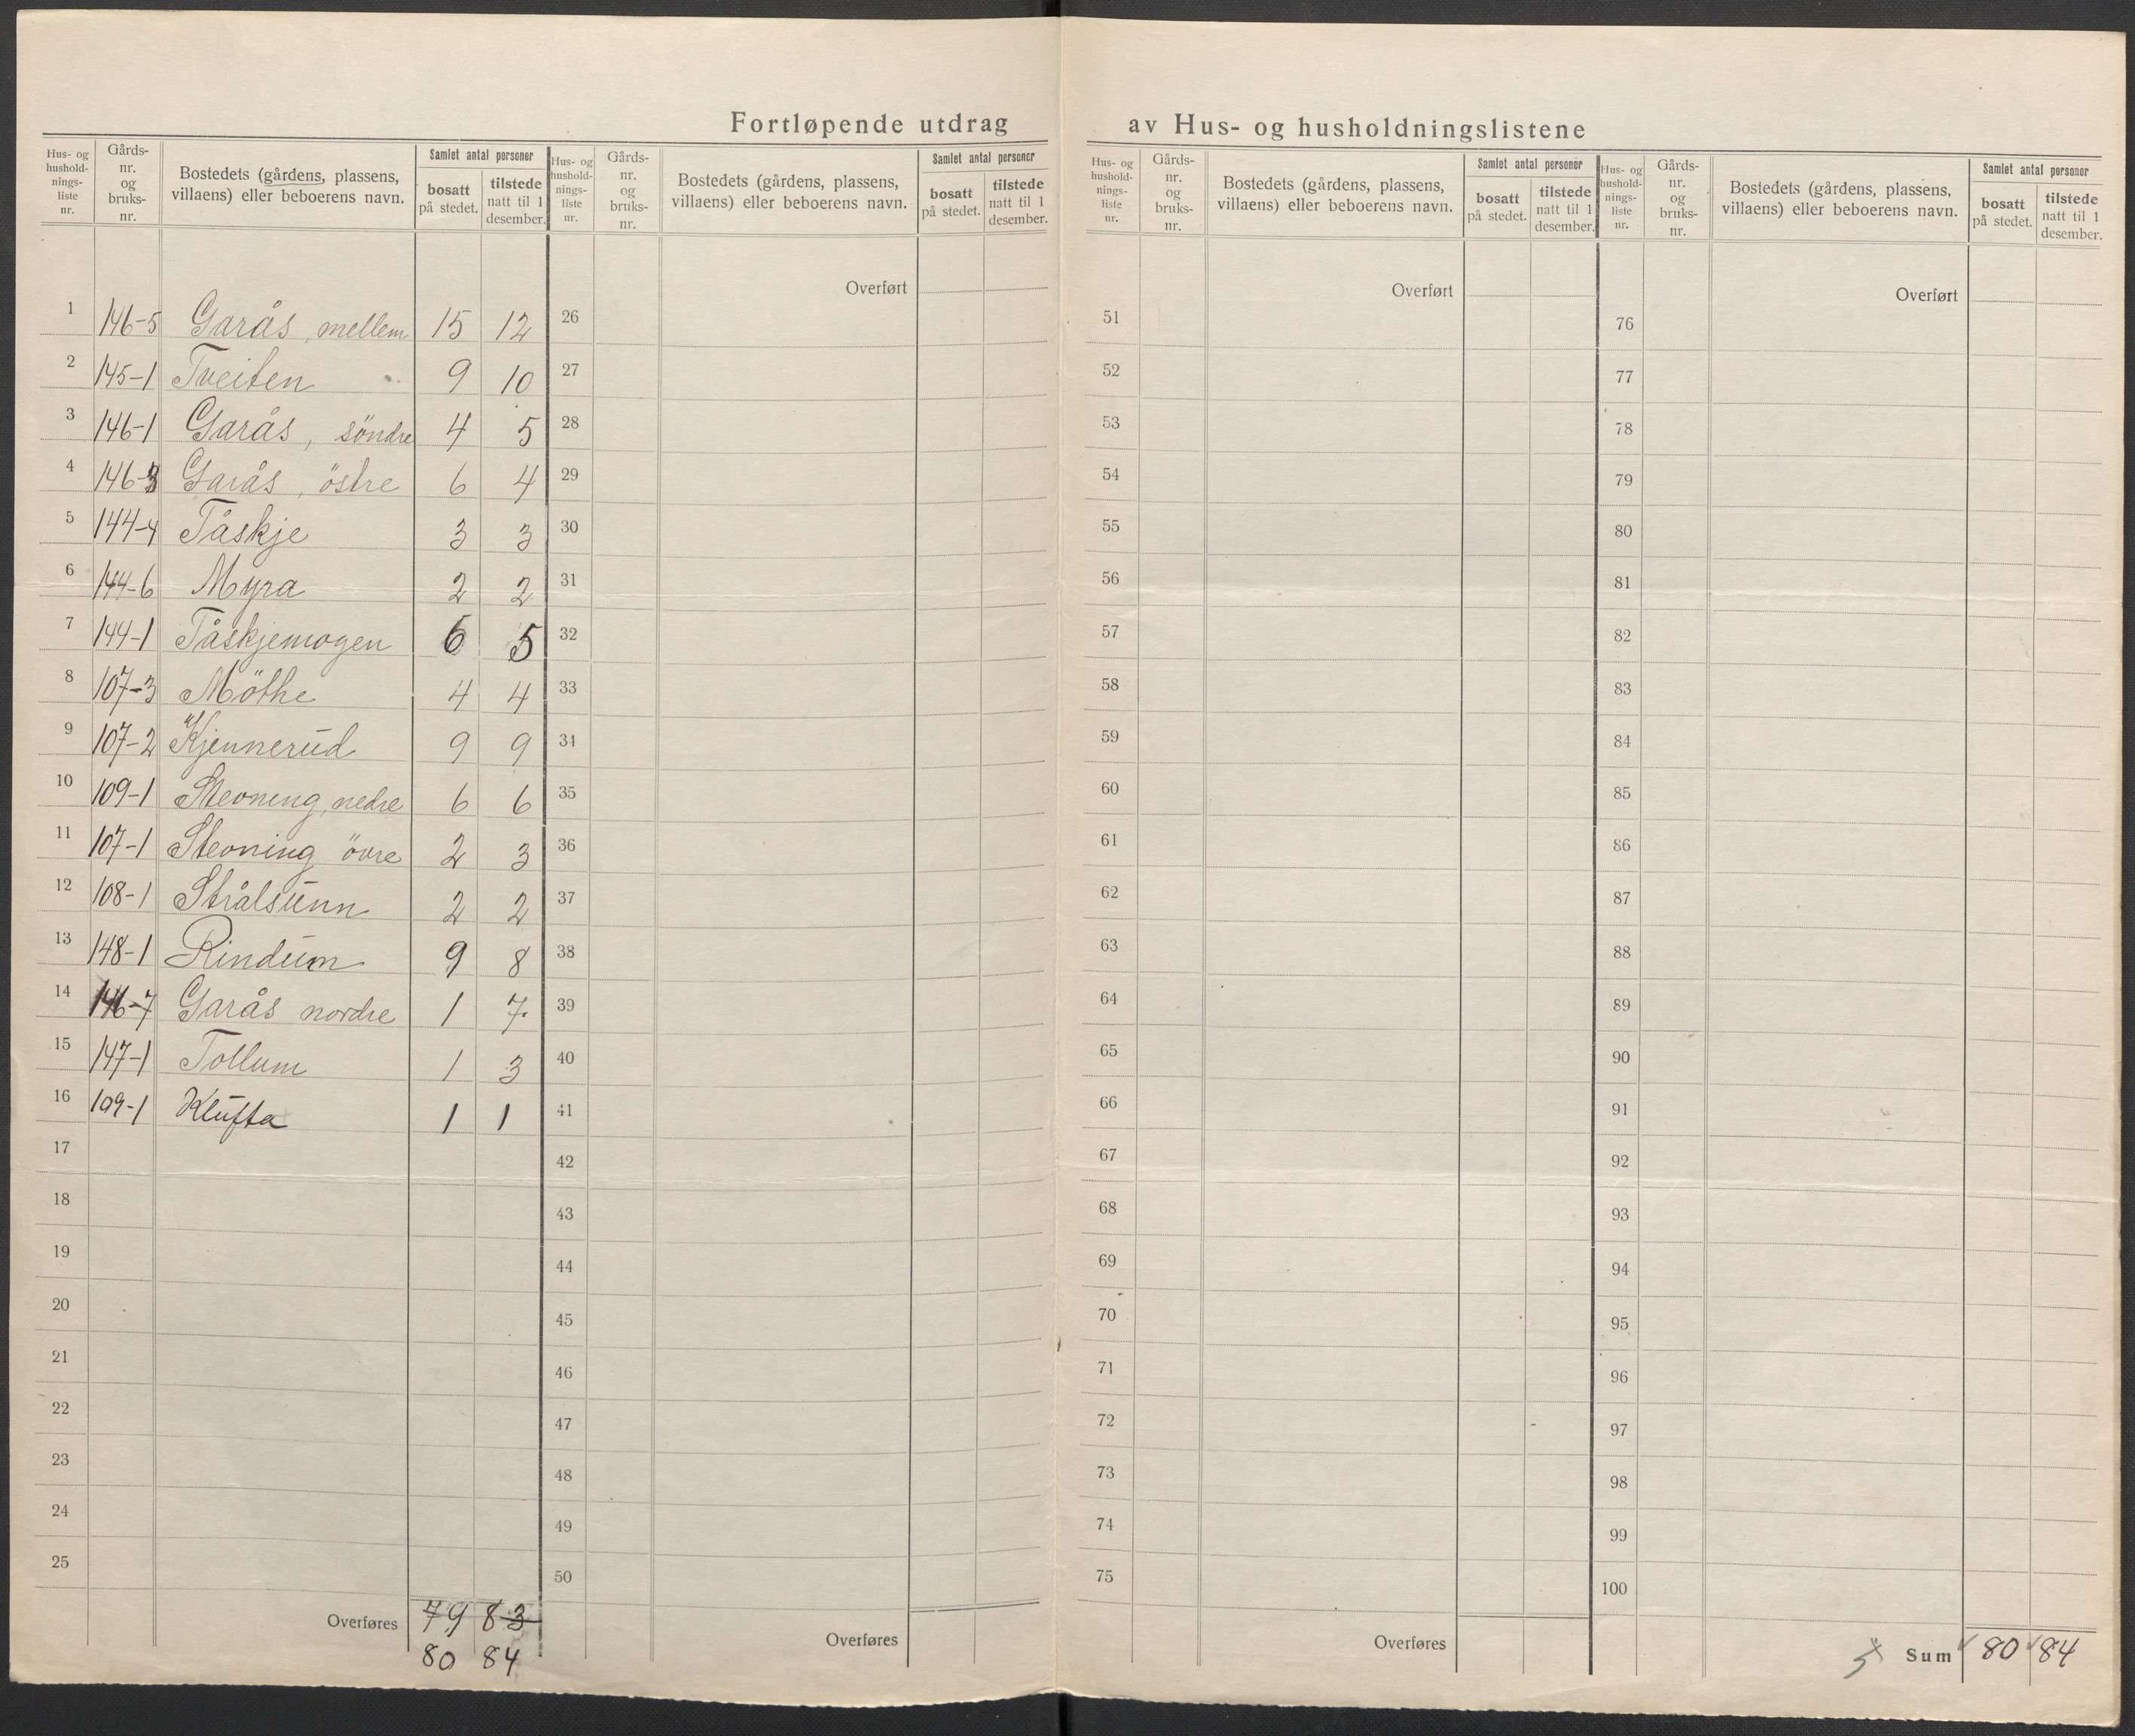 Fortløpende utdrag av Hus- og husholdningslistene
Hus- og hushold- nings- liste nr. | Gårds- nr. og bruks- nr. | Bostedets (gårdens, plassens, villaens) eller beboerens navn. | Samlet antal personer | bosatt på stedet. | tilstede natt til 1 desember.
1 146-5 Garås, mellem 15 12
2 145-1 Tveiten 9 10
3 146-1 Garås, söndre 4 5
4 146-3 Garås, östre 6 4
5 144-4 Tåskje 3 3
6 144-6 Myra 2 2
7 144-1 Tåskjemogen 6 5
8 107-3 Möthe 4 4
9 107-2 Kjennerud 9 9
10 109-1 Stevning, nedre 6 6
11 107-1 Stevning övre 2 3
12 108-1 Strålsunn 2 2
13 148-1 Rindum 9 8
14 146-7 Garås nordre 1 7
15 147-1 Tollum 1 3
16 109-1 Klufta 1 1
17
18
19
20
21
22
23
24
25
Overføres 79 83
80 84
Hus- og hushold- nings- liste nr. | Gårds- nr. og bruks- nr. | Bostedets (gårdens, plassens, villaens) eller beboerens navn. | Samlet antal personer | bosatt på stedet. | tilstede natt til 1 desember.
Overført
26
27
28
29
30
31
32
33
34
35
36
37
38
39
40
41
42
43
44
45
46
47
48
49
50
Overføres
Hus- og hushold- nings- liste nr. | Gårds- nr. og bruks- nr. | Bostedets (gårdens, plassens, villaens) eller beboerens navn. | Samlet antal personer | bosatt på stedet. | tilstede natt til 1 desember.
Overført
51
52
53
54
55
56
57
58
59
60
61
62
63
64
65
66
67
68
69
70
71
72
73
74
75
Overføres
Hus- og hushold- nings- liste nr. | Gårds- nr. og bruks- nr. | Bostedets (gårdens, plassens, villaens) eller beboerens navn. | Samlet antal personer | bosatt på stedet. | tilstede natt til 1 desember.
Overført
76
77
78
79
80
81
82
83
84
85
86
87
88
89
90
91
92
93
94
95
96
97
98
99
100
Sum 80 84